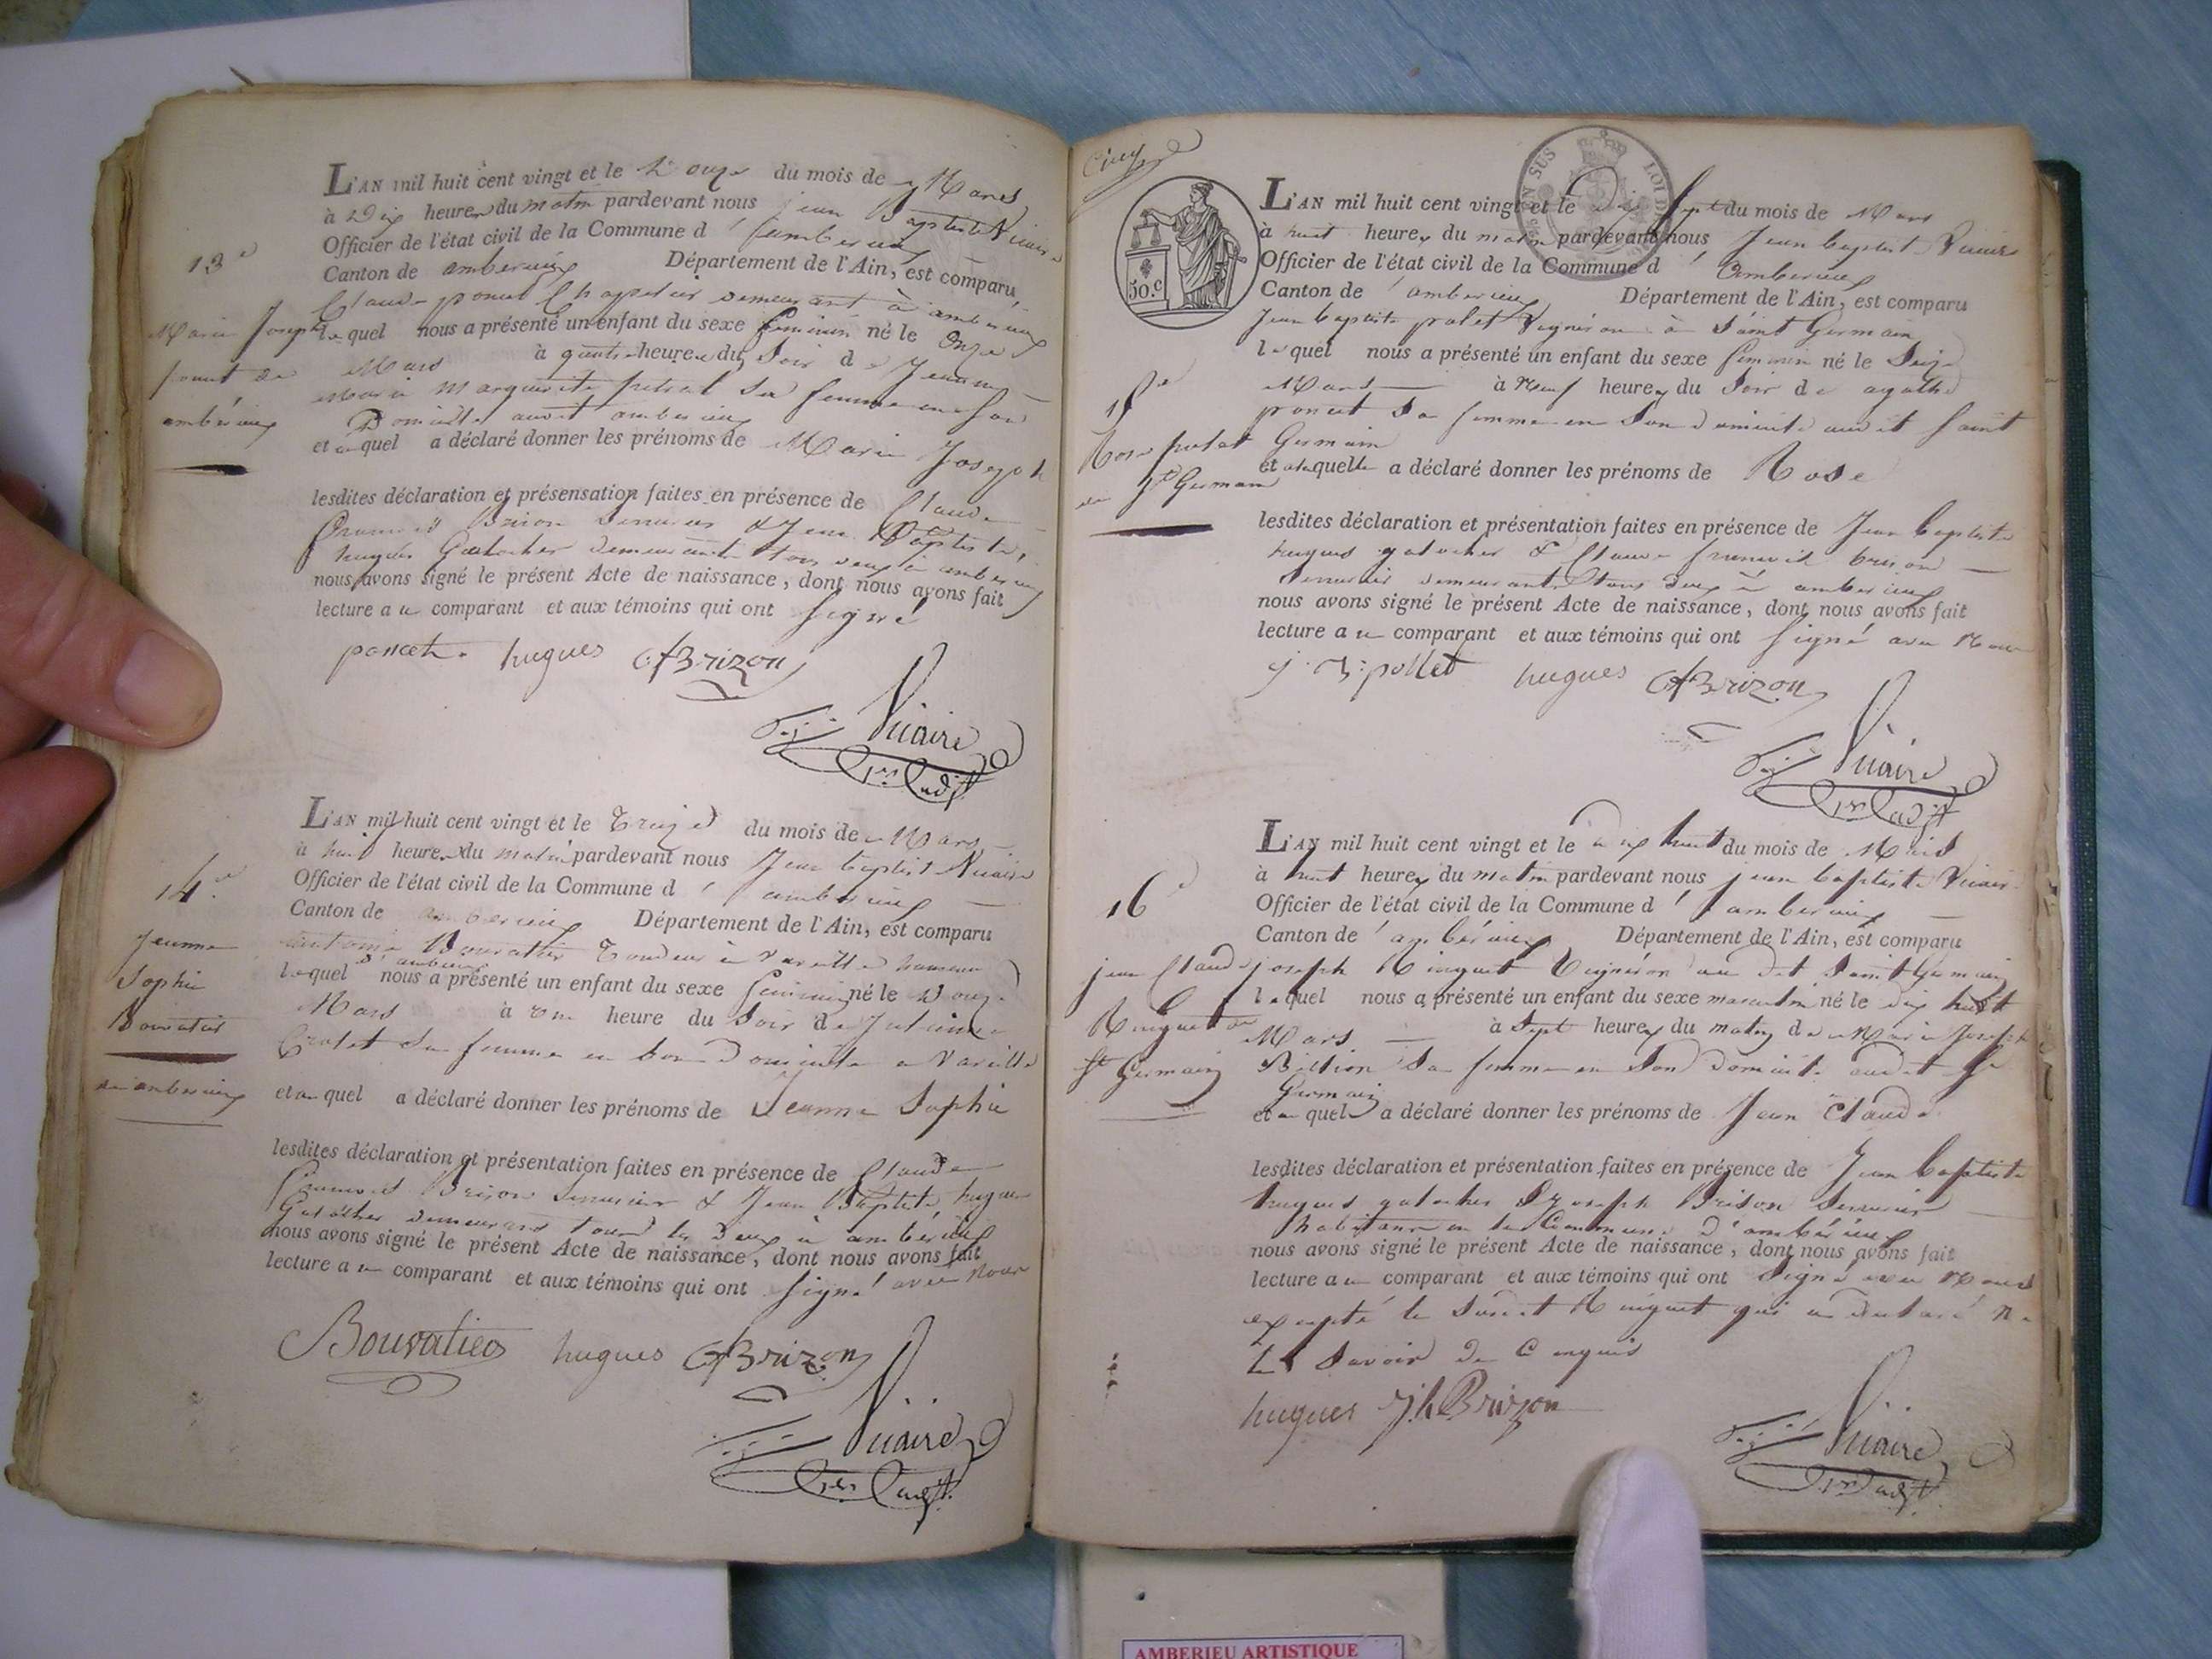 13e
Marie Joseph
ponut de
ambérieux
L'AN mil huit cent vingt et le douze du mois de Mars
à Dix heures du matin pardevant nous jean Baptiste Vicaire
Officier de l'état civil de la Commune d' ambérieux
Canton de ambérieux Département de l'Ain, est comparu
Claude ponut Chapelier demeurant à ambérieux
lequel nous a présenté un enfant du sexe feminin né le Onze
Mars à quatre heures du Soir de
Marie Marguerite sa femme en son
Domicile audit ambérieux
et auquel a déclaré donner les prénoms de Marie Joseph
lesdites déclaration et présensation faites en présence de Claude
Brison Serrurier & Jean Baptiste
hugues Galocher demeurants tous deux à ambérieux
nous avons signé le présent Acte de naissance, dont nous avons fait
lecture au comparant et aux témoins qui ont Signé
poncet hugues Brizon
Vicaire
1er adjt
14e
Jeanne
Sophie
Bouvatier
de ambérieux
L'AN mil huit cent vingt et le Treize du mois de Mars
à huit heures du matin pardevant nous Jean Baptiste Vicaire
Officier de l'état civil de la Commune d' ambérieux
Canton de ambérieux Département de l'Ain, est comparu
antoine Bouvatier à Vareille hameau
d'ambérieux
lequel nous a présenté un enfant du sexe feminin né le Douze
Mars à une heure du Soir de
sa femme en son Domicile a Vareille
et auquel a déclaré donner les prénoms de Jeanne Sophie
lesdites déclaration et présentation faites en présence de Claude
Brison Serrurier & Jean Baptiste hugues
Galocher demeurans tous les Deux à ambérieux
nous avons signé le présent Acte de naissance, dont nous avons fait
lecture au comparant et aux témoins qui ont Signé avec nous
Bouvatier hugues Brizon
Vicaire
1er adjt
Cinq
50.c
LOI
15e
Rose polet
de St Germain
L'AN mil huit cent vingt et le dix sept du mois de Mars
à huit heures du matin pardevant nous Jean baptiste Vicaire
Officier de l'état civil de la Commune d' Ambérieux
Canton d' ambérieux Département de l'Ain, est comparu
Jean baptiste polet Vigneron à Saint Germain
lequel nous a présenté un enfant du sexe feminin né le Seize
Mars à neuf heures du Soir de agathe
poncet Sa femme en Son domicile audit Saint
Germain
et a laquelle a déclaré donner les prénoms de Rose
lesdites déclaration et présentation faites en présence de Jean baptiste
hugues galocher & Claude brison
Serrurier demeurants tous deux à ambérieux
nous avons signé le présent Acte de naissance, dont nous avons fait
lecture au comparant et aux témoins qui ont Signé avec nous
j. B. pollet hugues Brizon
Vicaire
1er adjt
16e
jean Claude
Ringuet de
St Germain
L'AN mil huit cent vingt et le dix huit du mois de Mars
à huit heures du matin pardevant nous jean baptiste Vicaire
Officier de l'état civil de la Commune d' ambérieux
Canton d' ambérieux Département de l'Ain, est comparu
joseph Ringuet Vigneron au dit Saint Germain
lequel nous a présenté un enfant du sexe masculin né le dix huit
Mars à Sept heures du matin de Marie Joseph
Sa femme en Son Domicile audit St
Germain
et auquel a déclaré donner les prénoms de Jean Claude
lesdites déclaration et présentation faites en présence de Jean baptiste
hugues galocher & joseph Brison Serrurier
habitans en la Commune d'ambérieux
nous avons signé le présent Acte de naissance, dont nous avons fait
lecture au comparant et aux témoins qui ont Signé avec nous
excepté le Susdit Ringuet qui a Déclaré ne
le Savoir de Ce enquis
hugues jh Brizon
Vicaire
1er adjt
AMBERIEU ARTISTIQUE